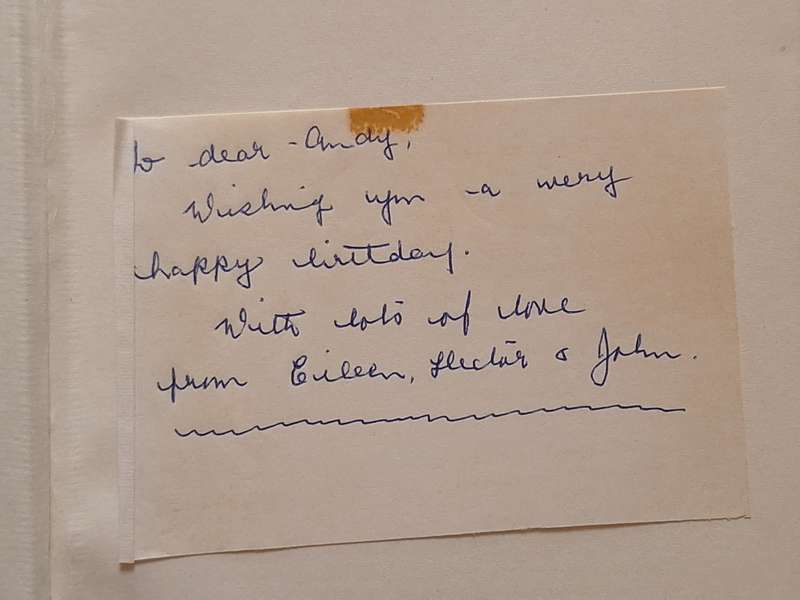 to dear Andy,
Wishing you a very
happy birthday.
With lots of love
from Eileen, Hector & John.